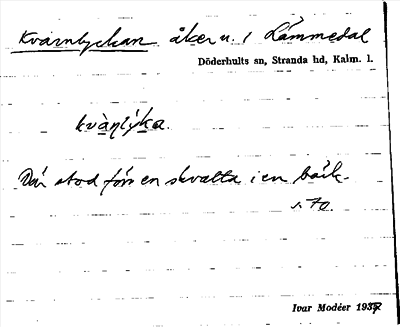 Kvarnlyckan åker u. / Lämmedal
Döderhults sn, Stranda hd, Kalm. l.
kvàṇlýka.
Där stod förr en skvalta i en bäck.
s. 70.
Ivar Modéer 1937